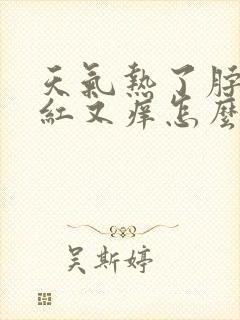 天氣熱了脖
紅又痒怎麼
吴斯婷